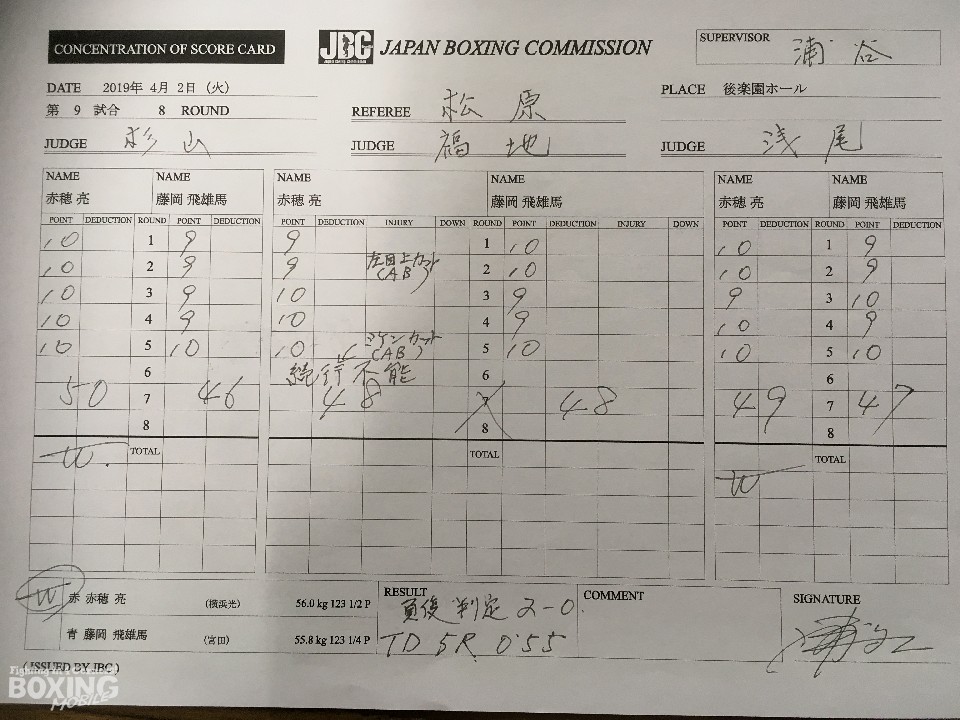 CONCENTRATION OF SCORE CARD
JBC
JAPAN BOXING COMMISSION
SUPERVISOR 浦谷
DATE 2019年 4月 2日 (火)
PLACE 後楽園ホール
第 9 試合 8 ROUND
REFEREE 松原
JUDGE 杉山
JUDGE 福地
JUDGE 浅尾
NAME NAME NAME NAME NAME NAME
赤穂 亮 藤岡 飛雄馬 赤穂 亮 藤岡 飛雄馬 赤穂 亮 藤岡 飛雄馬
POINT DEDUCTION ROUND POINT DEDUCTION POINT DEDUCTION INJURY DOWN ROUND POINT DEDUCTION INJURY DOWN POINT DEDUCTION ROUND POINT DEDUCTION
10 1 9 9 1 10 10 1 9
10 2 9 9 左目上カット (AB) 2 10 10 2 9
10 3 9 10 3 9 9 3 10
10 4 9 10 4 9 10 4 9
10 5 10 10 ミケンカット (AB) 5 10 10 5 10
6 続行不能 6 6
50 7 46 48 7 48 49 7 47
8 8 8
W. TOTAL TOTAL TOTAL
W
W 赤 赤穂 亮 (横浜光) 56.0 kg 123 1/2 P
青 藤岡 飛雄馬 (宮田) 55.8 kg 123 1/4 P
RESULT
負傷判定 2-0
TD 5R 0'55
COMMENT
SIGNATURE
(ISSUED BY JBC)
BOXING
MOBILE